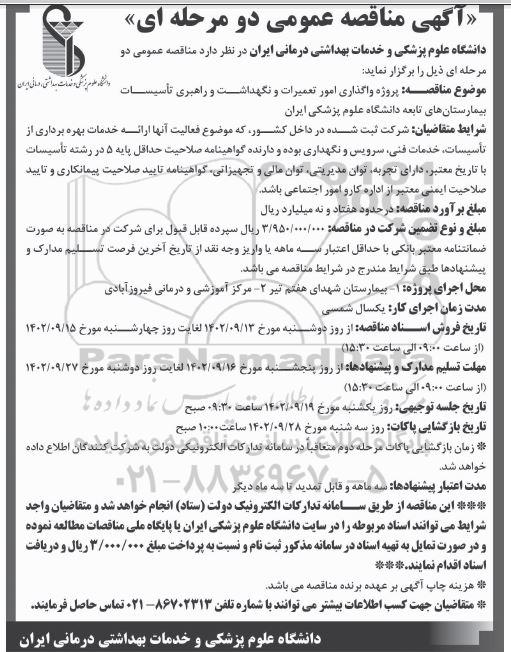 «آگهی مناقصه عمومی دو مرحله ای»
دانشگاه علوم پزشکی و خدمات بهداشتی درمانی ایران
دانشگاه علوم پزشکی و خدمات بهداشتی درمانی ایران در نظر دارد مناقصه عمومی دو
مرحله ای ذیل را برگزار نماید:
موضوع مناقصه: پروژه واگذاری امور تعمیرات و نگهداشت و راهبری تأسیسات
بیمارستان‌های تابعه دانشگاه علوم پزشکی ایران
شرایط متقاضیان: شرکت ثبت شده در داخل کشور، که موضوع فعالیت آنها ارائه خدمات بهره برداری از
تأسیسات، خدمات فنی، سرویس و نگهداری بوده و دارنده گواهینامه صلاحیت حداقل پایه ۵ در رشته تأسیسات
با تاریخ معتبر، دارای تجربه، توان مدیریتی، توان مالی و تجهیزاتی، گواهینامه تایید صلاحیت پیمانکاری و تایید
صلاحیت ایمنی معتبر از اداره کار و امور اجتماعی باشد.
مبلغ برآورد مناقصه: درحدود هفتاد و نه میلیارد ریال
مبلغ و نوع تضمین شرکت در مناقصه: ۳/۹۵۰/۰۰۰/۰۰۰ ریال سپرده قابل قبول برای شرکت در مناقصه به صورت
ضمانتنامه معتبر بانکی با حداقل اعتبار سه ماهه یا واریز وجه نقد از تاریخ آخرین فرصت تسلیم مدارک و
پیشنهادها طبق شرایط مندرج در شرایط مناقصه می باشد.
محل اجرای پروژه: ۱- بیمارستان شهدای هفتم تیر ۲- مرکز آموزشی و درمانی فیروزآبادی
مدت زمان اجرای کار: یکسال شمسی
تاریخ فروش اسناد مناقصه: از روز دوشنبه مورخ ۱۴۰۲/۰۹/۱۳ لغایت روز چهارشنبه مورخ ۱۴۰۲/۰۹/۱۵
(از ساعت ۰۹:۰۰ الی ساعت ۱۵:۳۰)
مهلت تسلیم مدارک و پیشنهادها: از روز پنجشنبه مورخ ۱۴۰۲/۰۹/۱۶ لغایت روز دوشنبه مورخ ۱۴۰۲/۰۹/۲۷
(از ساعت ۰۹:۰۰ الی ساعت ۱۵:۳۰)
تاریخ جلسه توجیهی: روز یکشنبه مورخ ۱۴۰۲/۰۹/۱۹ ساعت ۰۹:۳۰ صبح
تاریخ بازگشایی پاکات: روز سه شنبه مورخ ۱۴۰۲/۰۹/۲۸ ساعت ۱۰:۰۰ صبح
* زمان بازگشایی پاکات مرحله دوم متعاقباً در سامانه تدارکات الکترونیکی دولت به شرکت کنندگان اطلاع داده
خواهد شد.
مدت اعتبار پیشنهادها: سه ماهه و قابل تمدید تا سه ماه دیگر
*** این مناقصه از طریق سامانه تدارکات الکترونیک دولت (ستاد) انجام خواهد شد و متقاضیان واجد
شرایط می توانند اسناد مربوطه را در سایت دانشگاه علوم پزشکی ایران یا پایگاه ملی مناقصات مطالعه نموده
و در صورت تمایل به تهیه اسناد در سامانه مذکور ثبت نام و نسبت به پرداخت مبلغ ۳/۰۰۰/۰۰۰ ریال و دریافت
اسناد اقدام نمایند.***
* هزینه چاپ آگهی بر عهده برنده مناقصه می باشد.
* متقاضیان جهت کسب اطلاعات بیشتر می توانند با شماره تلفن ۸۶۷۰۲۳۱۳-۰۲۱ تماس حاصل فرمایند.
دانشگاه علوم پزشکی و خدمات بهداشتی درمانی ایران
ParsNamadData
۰۲۱-۸۸۳۴۹۶۷۰-۵